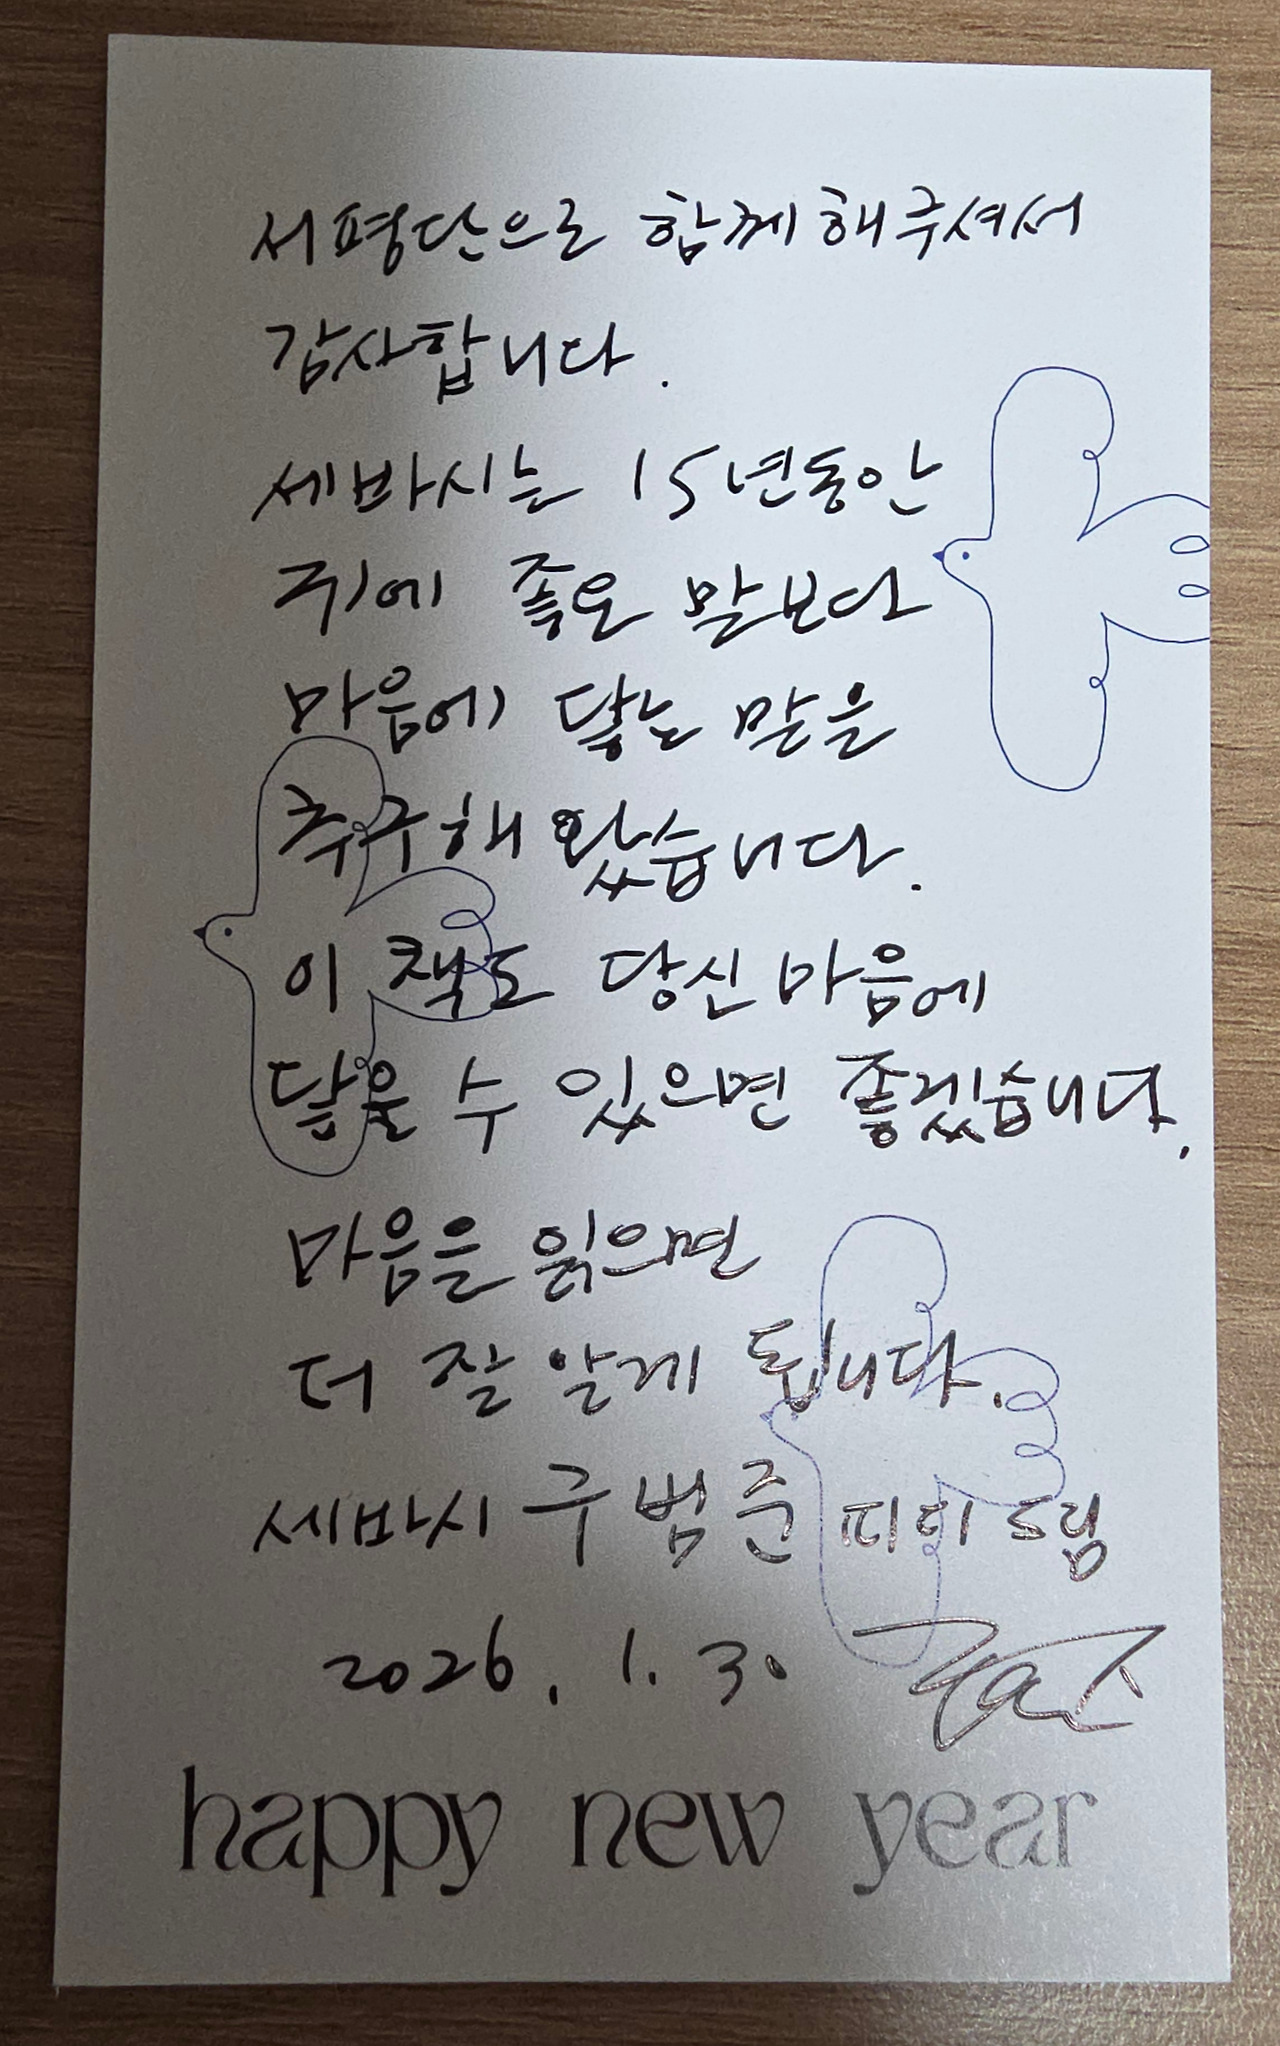 서평단으로 함께해주셔서
감사합니다.
세바시는 15년동안
귀에 좋은 말보다
마음에 닿는 말을
추구해 왔습니다.
이 책도 당신 마음에
닿을 수 있으면 좋겠습니다.
마음을 읽으면
더 잘 알게 됩니다.
세바시 구범준 피디 드림
2026. 1. 30
happy new year